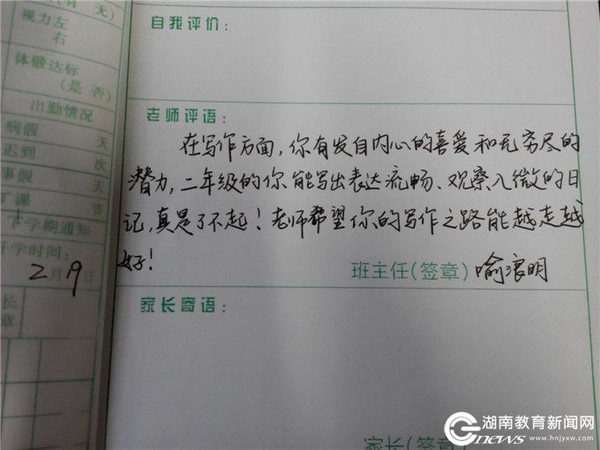 视力左
右
体锻达标
(是 否)
出勤情况
病假 天
迟到 次
事假 天
旷课 节
下学期通知
开学时间:
2月19日
自我评价:
老师评语:
在写作方面,你有发自内心的喜爱和无穷尽的
潜力,二年级的你能写出表达流畅、观察入微的日
记,真是了不起!老师希望你的写作之路能越走越
好!
班主任(签章) 喻浪明
家长寄语:
家长(签章)
湖南教育新闻网
news www.hnjyxw.com